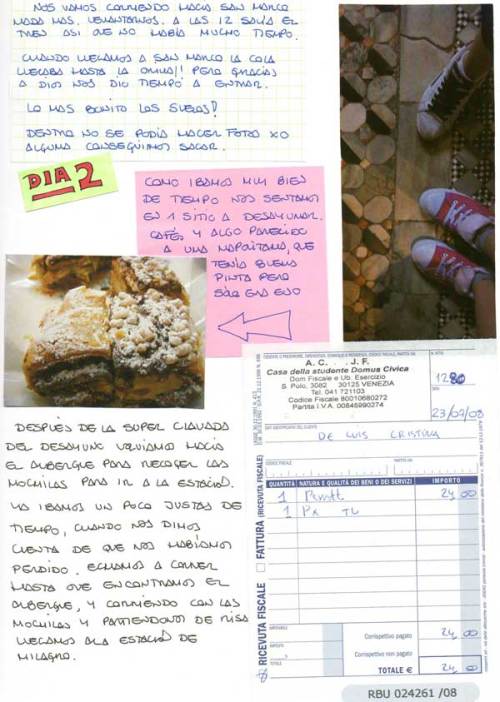 NOS VAMOS CORRIENDO HACIA SAN MARCO
NADA MÁS LEVANTARNOS. A LAS 12 SALÍA EL
TREN ASI QUE NO HABÍA MUCHO TIEMPO.
CUANDO LLEGAMOS A SAN MARCO LA COLA
LLEGABA HASTA LA ORILLA!! PERO GRACIAS
A DIOS NOS DIO TIEMPO A ENTRAR.
LO MAS BONITO LOS SUELOS!
DENTRO NO SE PODÍA HACER FOTOS XO
ALGUNA CONSEGUIMOS SACAR.
DIA 2
COMO IBAMOS MUY BIEN
DE TIEMPO NOS SENTAMOS
EN 1 SITIO A DESAYUNAR.
CAFÉS Y ALGO PARECIDO
A UNA NAPOLITANA, QUE
TENÍA BUENA
PINTA PERO
SÓLO ERA ESO
DESPUÉS DE LA SUPER CLAVADA
DEL DESAYUNO VOLVIAMOS HACIA
EL ALBERGUE PARA RECOGER LAS
MOCHILAS PARA IR A LA ESTACIÓ.
YA IBAMOS UN POCO JUSTAS DE
TIEMPO, CUANDO NOS DIMOS
CUENTA DE QUE NOS HABÍAMOS
PERDIDO. ECHAMOS A CORRER
HASTA QUE ENCONTRAMOS EL
ALBERGUE, Y CORRIENDO CON LAS
MOCHILAS Y PARTIENDONOS DE RISA
LLEGAMOS A LA ESTACIÓ DE
MILAGRO.
A. C. J. F.
Casa della studente Domus Civica
Dom Fiscale e Ub. Esercizio
S. Polo, 3082 30125 VENEZIA
Tel. 041 721103
Codice Fiscale 80010680272
Partita I.V.A. 00846990274
1280
23/09/08
DE LUIS CRISTINA
RICEVUTA FISCALE FATTURA (RICEVUTA FISCALE)
QUANTITÀ NATURA E QUALITÀ DEI BENI O DEI SERVIZI IMPORTO
1 24,00
1
Corrispettivo pagato 24,00
Corrispettivo non pagato
TOTALE € 24,00
RBU 024261 /08